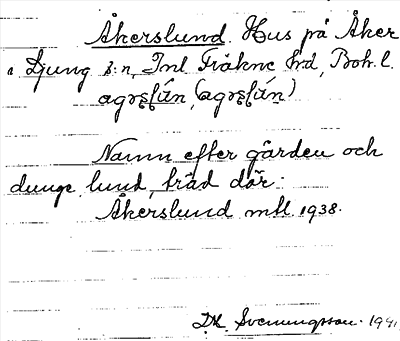 Åkerslund. Hus på Åker
i Ljung s:n, Inl Fräkne hd, Boh. l.
Namn efter gården och
dunge, lund, träd där.
Åkerslund mtl 1938.
D.H. Svenungsson. 1941